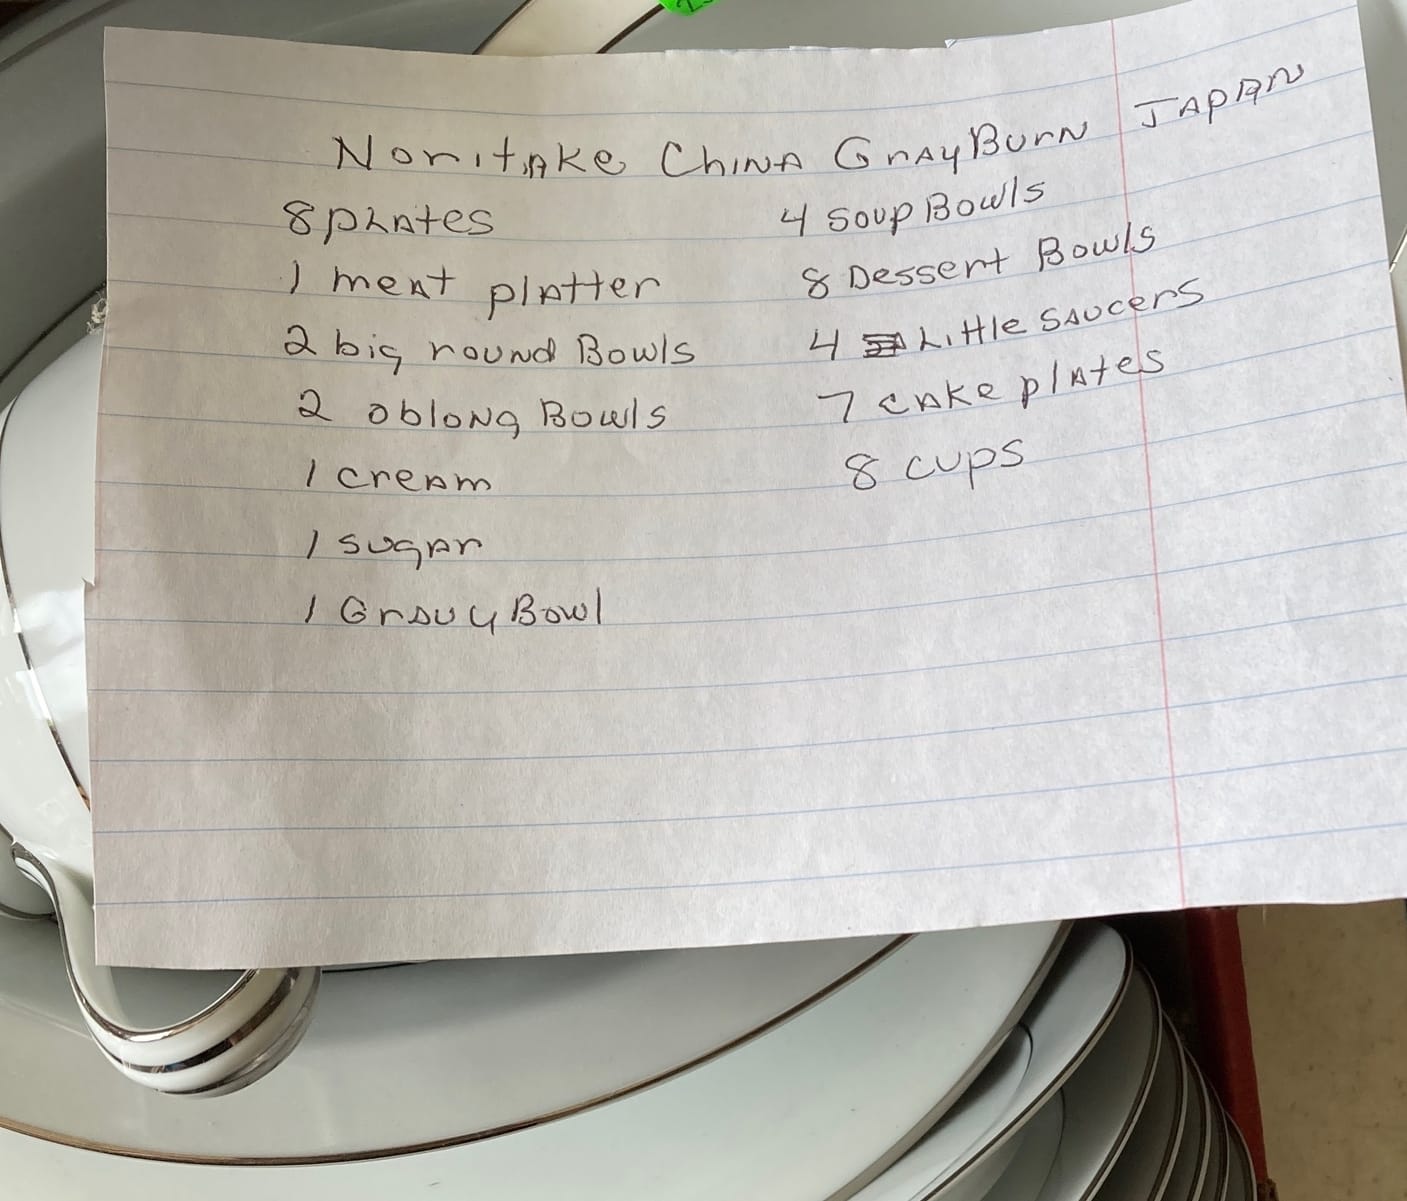 Noritake China GrayBurn Japan
8 plates
1 meat platter
2 big round Bowls
2 oblong Bowls
1 cream
1 sugar
1 Gravy Bowl
4 soup Bowls
8 Dessert Bowls
4 Little saucers
7 cake plates
8 cups